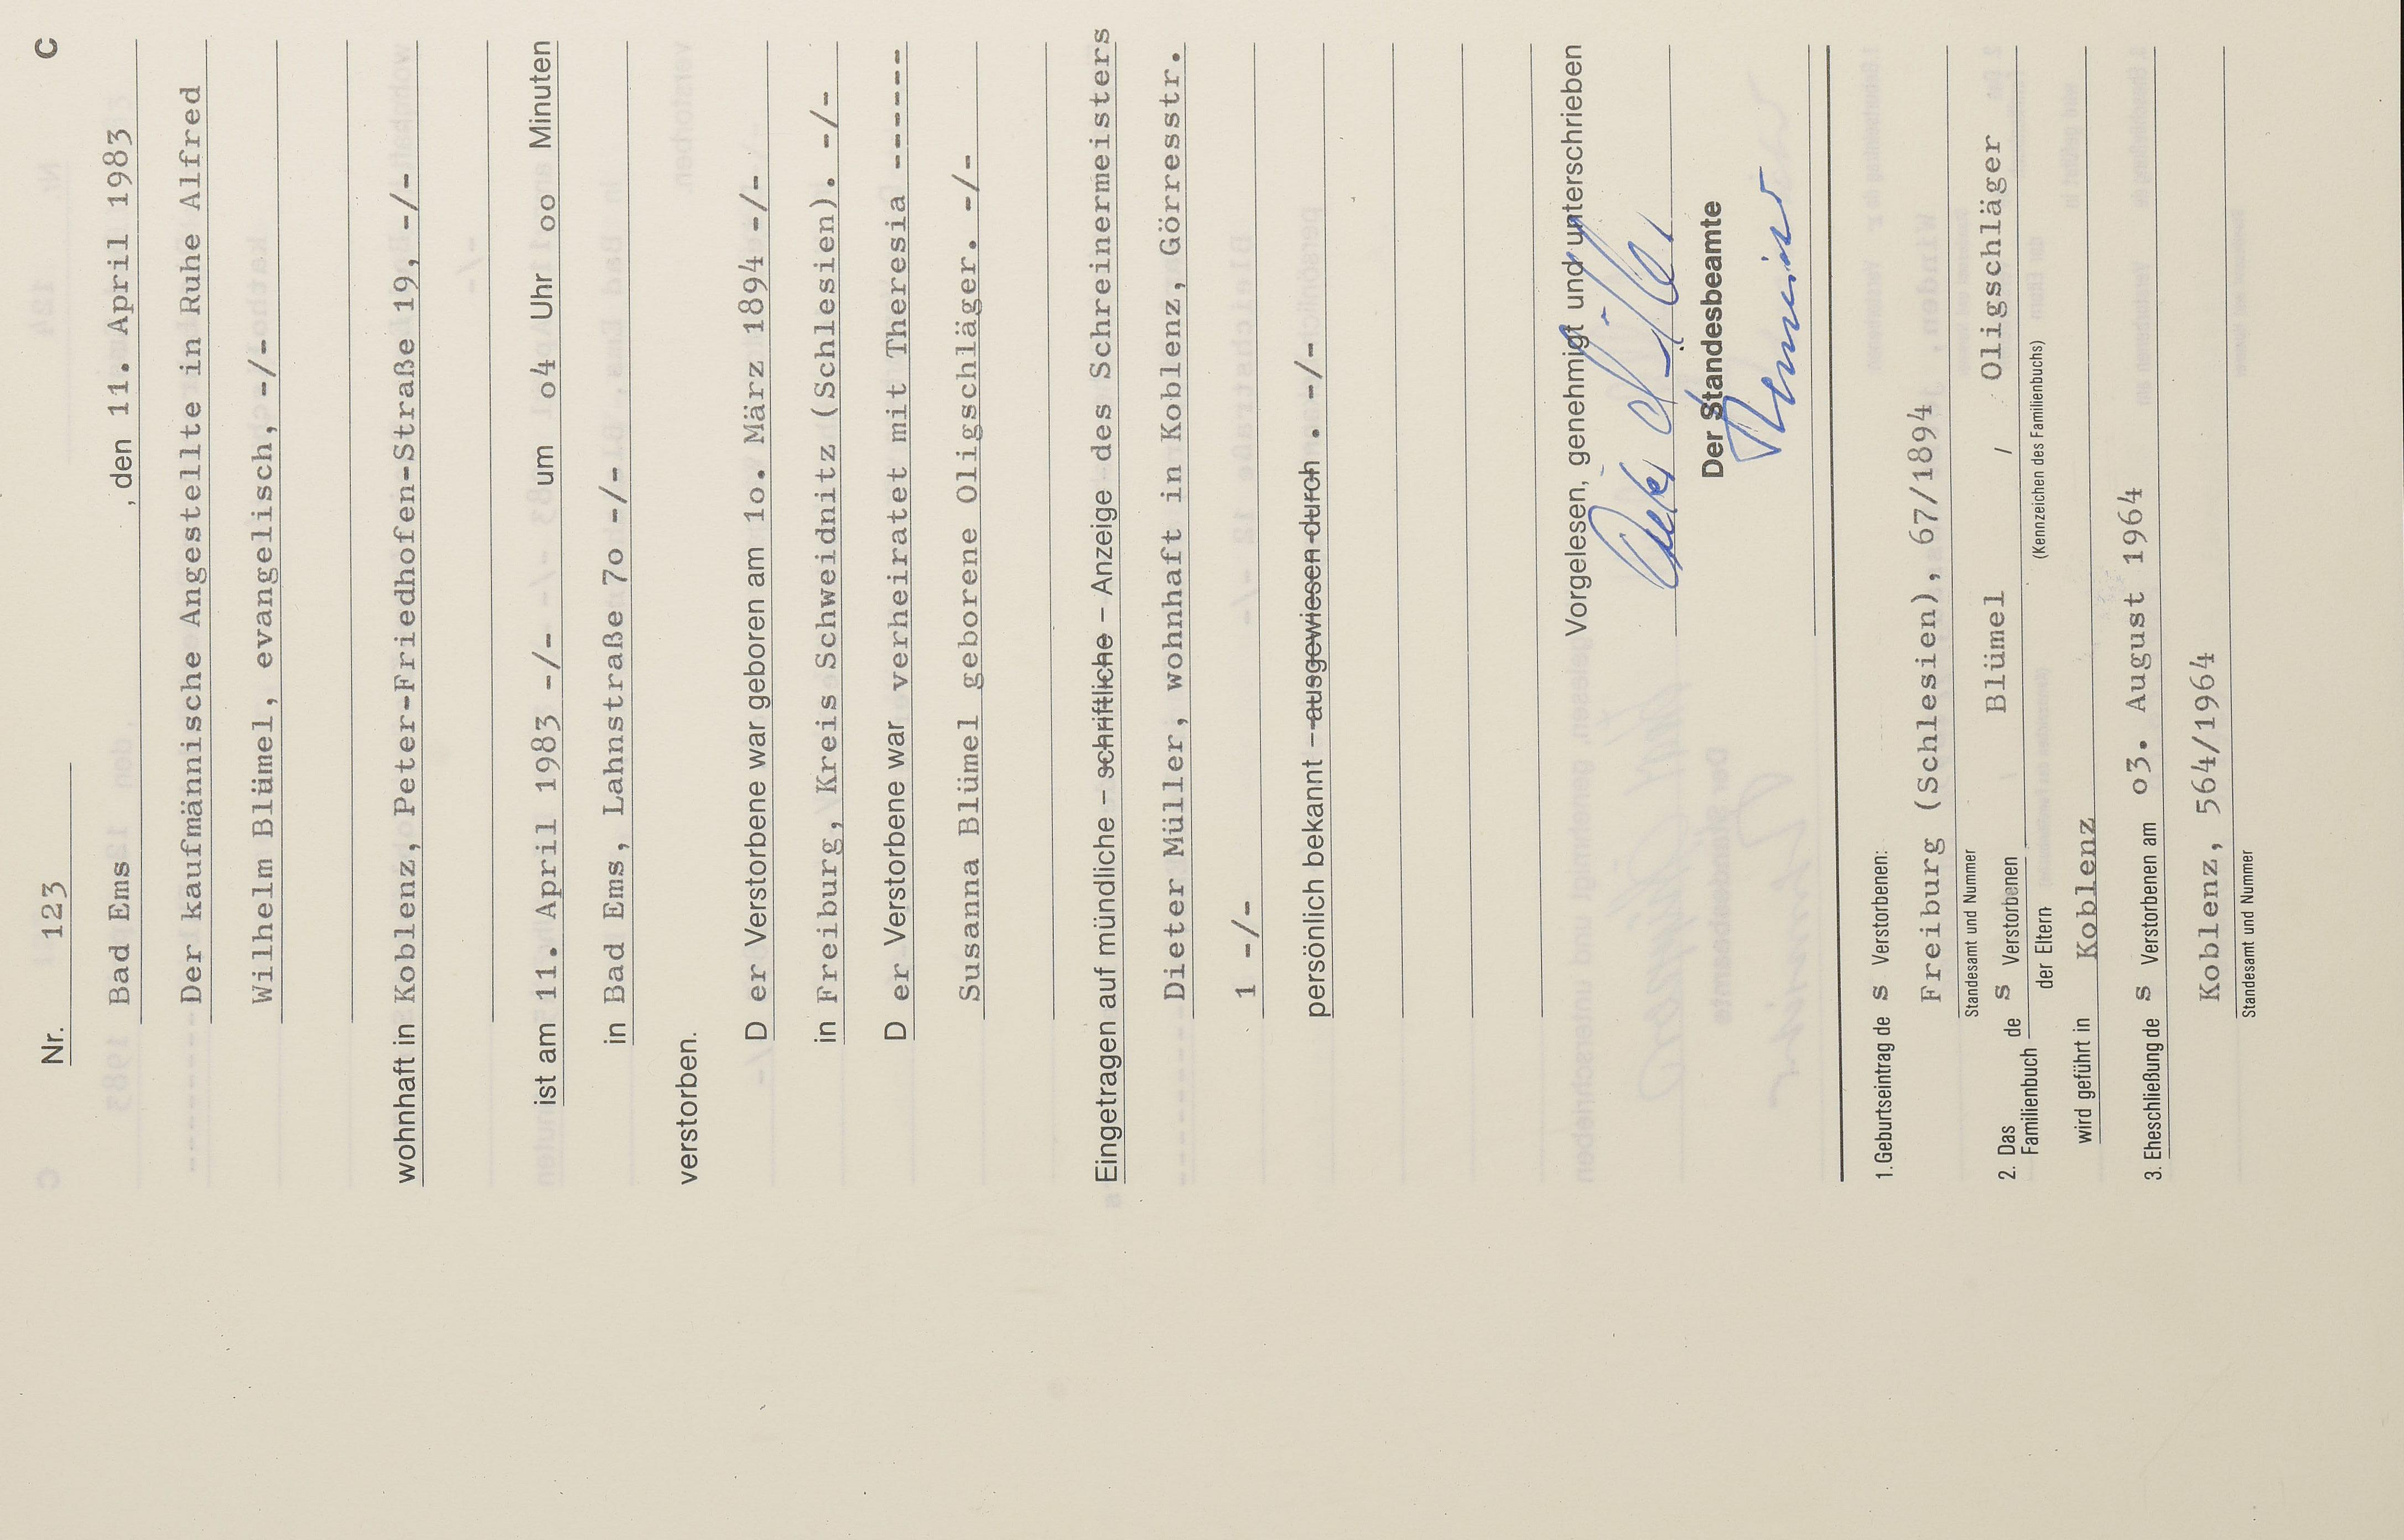 C
Nr. 123
Bad Ems, den 11. April 1983
Der kaufmännische Angestellte in Ruhe Alfred
Wilhelm Blümel, evangelisch, -/-
wohnhaft in Koblenz, Peter-Friedhofen-Straße 19, -/-
ist am 11. April 1983 -/- um o4 Uhr oo Minuten
in Bad Ems, Lahnstraße 7o -/-
verstorben.
D er Verstorbene war geboren am 1o. März 1894 -/-
in Freiburg, Kreis Schweidnitz (Schlesien). -/-
D er Verstorbene war verheiratet mit Theresia ------
Susanna Blümel geborene Oligschläger. -/-
Eingetragen auf mündliche – schriftliche – Anzeige des Schreinermeisters
Dieter Müller, wohnhaft in Koblenz, Görresstr.
1 -/-
persönlich bekannt – ausgewiesen durch . -/-
Vorgelesen, genehmigt und unterschrieben
Der Standesbeamte
1. Geburtseintrag de s Verstorbenen:
Freiburg (Schlesien), 67/1894
Standesamt und Nummer
2. Das Familienbuch de s Verstorbenen Blümel / Oligschläger
der Eltern (Kennzeichen des Familienbuchs)
wird geführt in Koblenz
3. Eheschließung de s Verstorbenen am o3. August 1964
Koblenz, 564/1964
Standesamt und Nummer